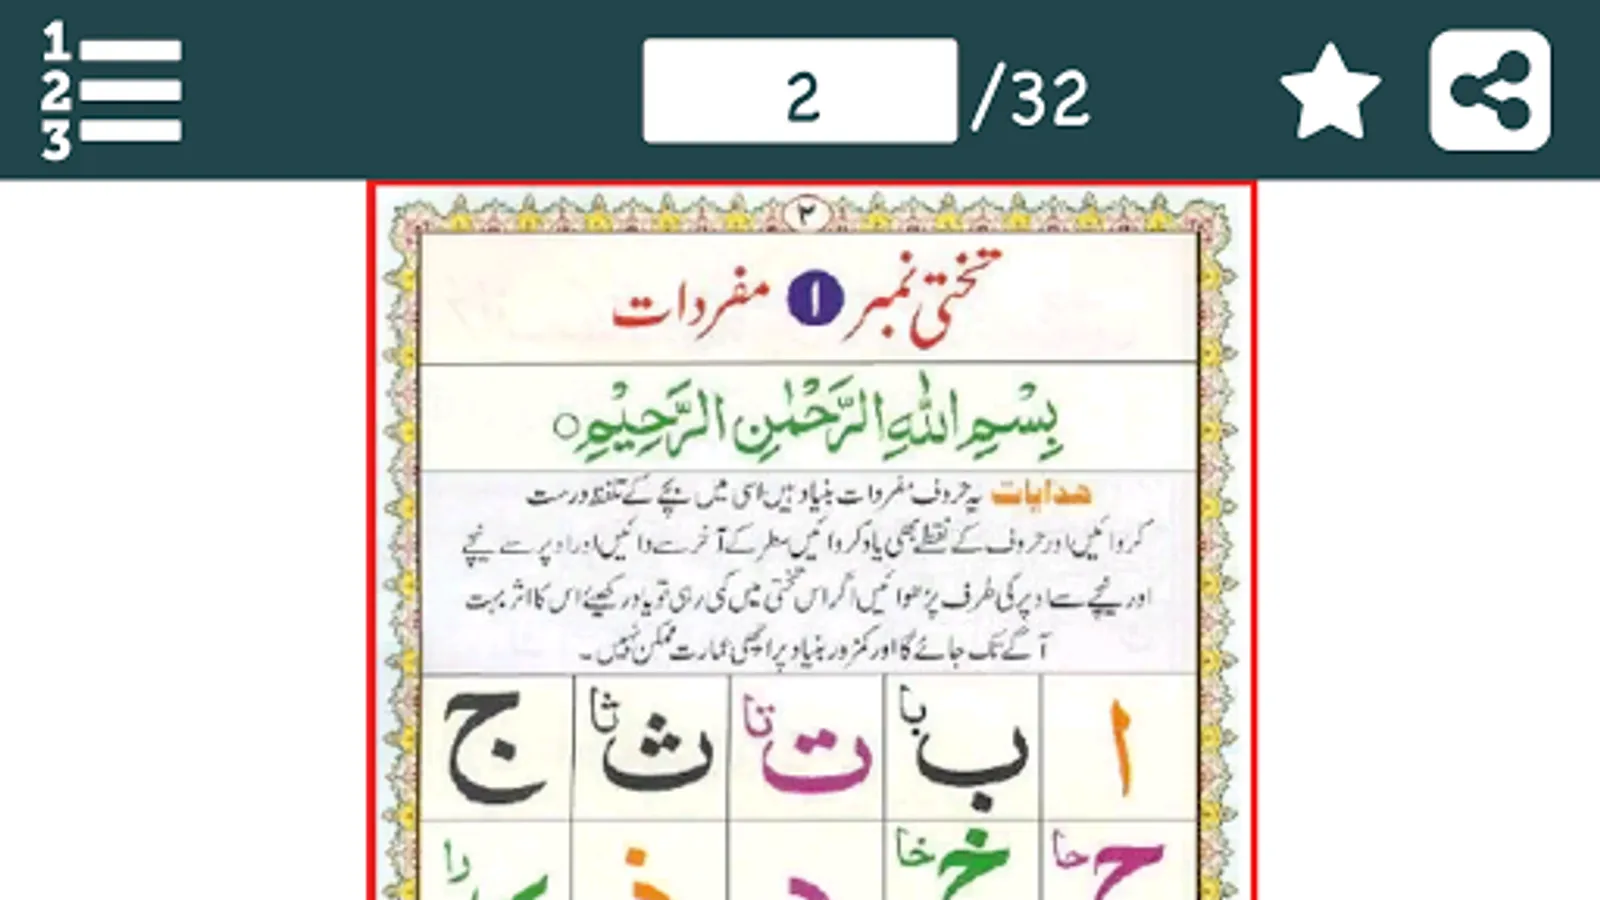 1
2
3
2 /32
۲
تختی نمبر ۱ مفردات
بِسْمِ اللّٰهِ الرَّحْمٰنِ الرَّحِيْمِ
ہدایات یہ حروف مفردات بنیاد ہیں اسی میں بچے کے تلفظ درست
کروائیں اور حروف کے نقطے بھی یاد کروائیں سطر کے آخر سے دائیں اور اوپر سے نیچے
اور نیچے سے اوپر کی طرف پڑھوائیں اگر اس تختی میں کمی رہی تو یاد رکھیئے اس کا اثر بہت
آگے تک جائے گا اور کمزور بنیاد پر اچھی عمارت ممکن نہیں۔
ا ب با ت تا ث ثا ج
ح حا خ خا د ذ ر را